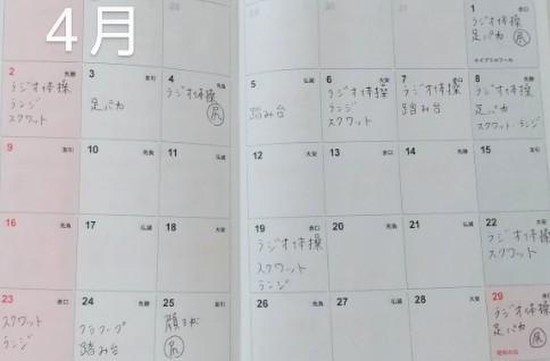 4月
1 赤口
ラジオ体操
足パカ 尻
エイプリルフール
2 先勝
ラジオ体操
ランジ
スクワット
3 友引
足パカ
4 先負
ラジオ体操
尻
5 仏滅
踏み台
6 大安
ラジオ体操
ランジ
スクワット
7 赤口
ラジオ体操
踏み台
8 先勝
ラジオ体操
足パカ
スクワット・ランジ
9 友引
10 先負
11 仏滅
12 大安
13 赤口
14 先勝
15 友引
16 先負
17 仏滅
18 大安
19 赤口
ラジオ体操
スクワット
ランジ
20 先負
21 仏滅
22 大安
ラジオ体操
スクワット
23 赤口
スクワット
ランジ
24 先勝
踏み台
25 友引
尻
26 先負
27 仏滅
28 大安
29 赤口
ラジオ体操
足パカ 尻
昭和の日